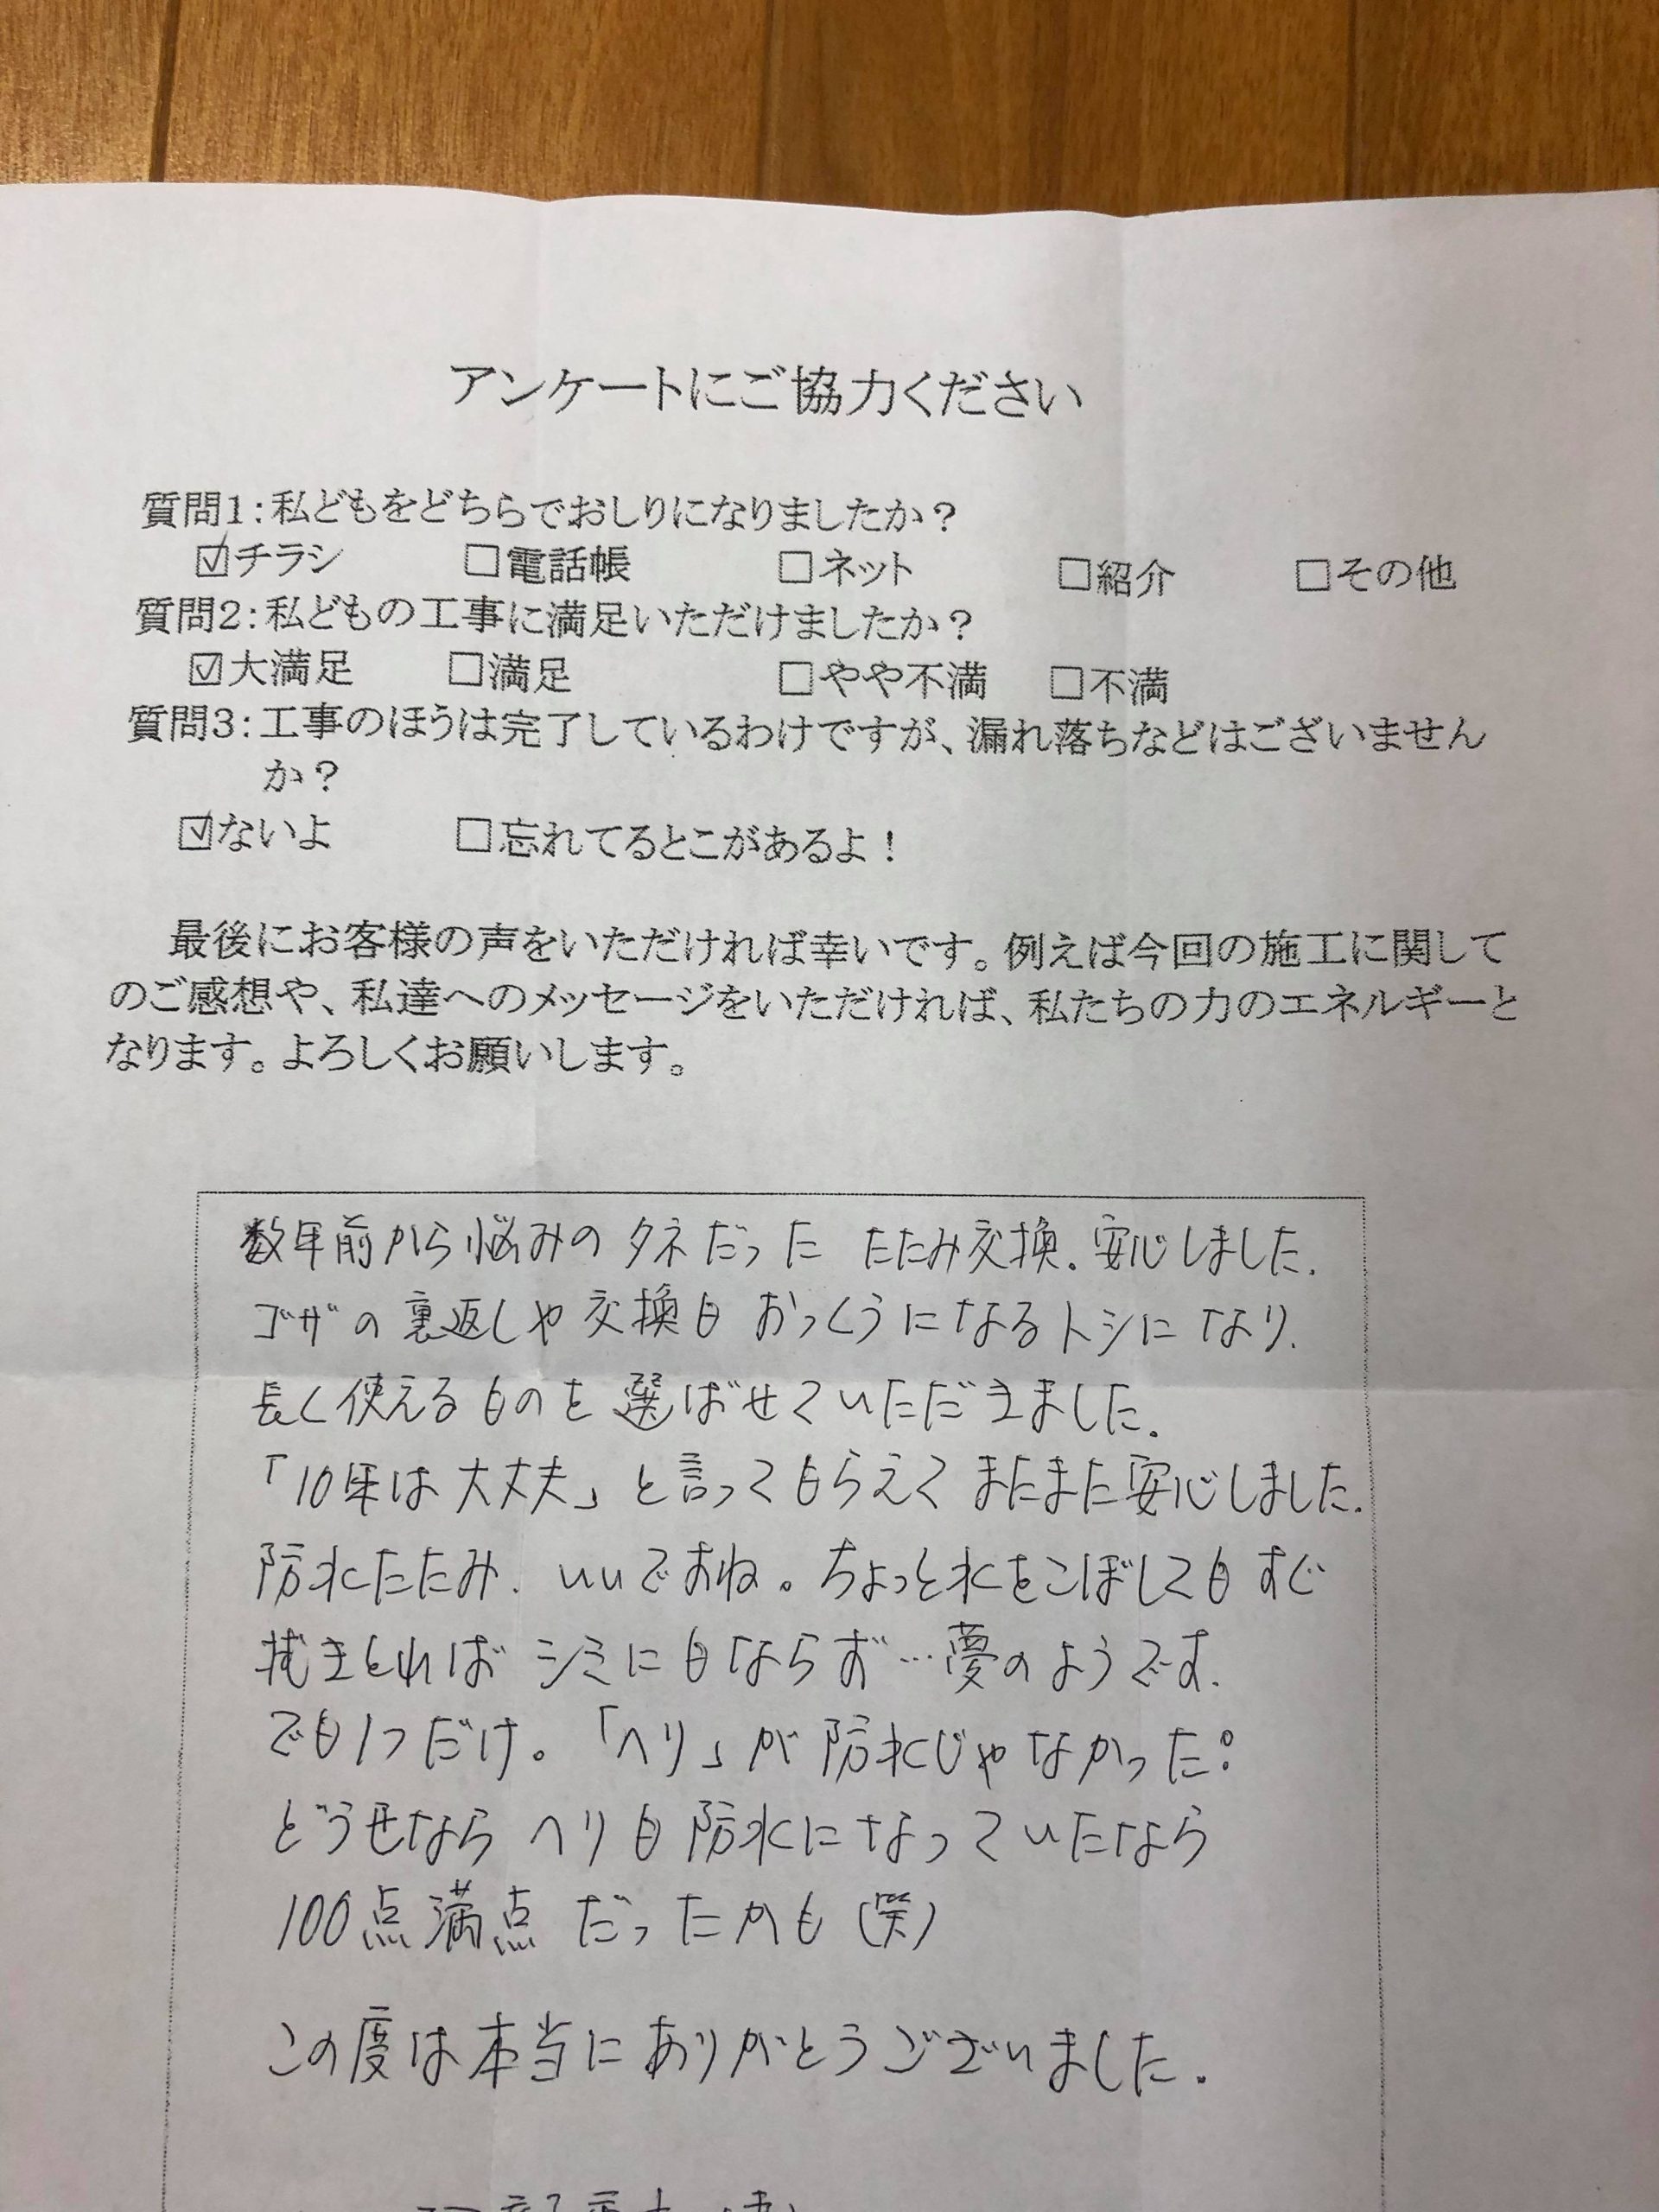 アンケートにご協力ください
質問1:私どもをどちらでおしりになりましたか?
☑チラシ □電話帳 □ネット □紹介 □その他
質問2:私どもの工事に満足いただけましたか?
☑大満足 □満足 □やや不満 □不満
質問3:工事のほうは完了しているわけですが、漏れ落ちなどはございません
か?
☑ないよ □忘れてるとこがあるよ!
最後にお客様の声をいただければ幸いです。例えば今回の施工に関して
のご感想や、私達へのメッセージをいただければ、私たちの力のエネルギーと
なります。よろしくお願いします。
数年前から悩みのタネだった たたみ交換。安心しました.
ゴザの裏返しや交換も おっくうになるトシになり.
長く使えるものを選ばせていただきました.
「10年は大丈夫」と言ってもらえてまたまた安心しました.
防水たたみ. いいですね。ちょっと水をこぼしてもすぐ
拭きとれば シミにもならず…夢のようです.
でも1つだけ。「ヘリ」が防水じゃなかった:
どうせなら ヘリも防水になっていたなら
100点満点だったかも(笑)
この度は本当にありがとうございました.